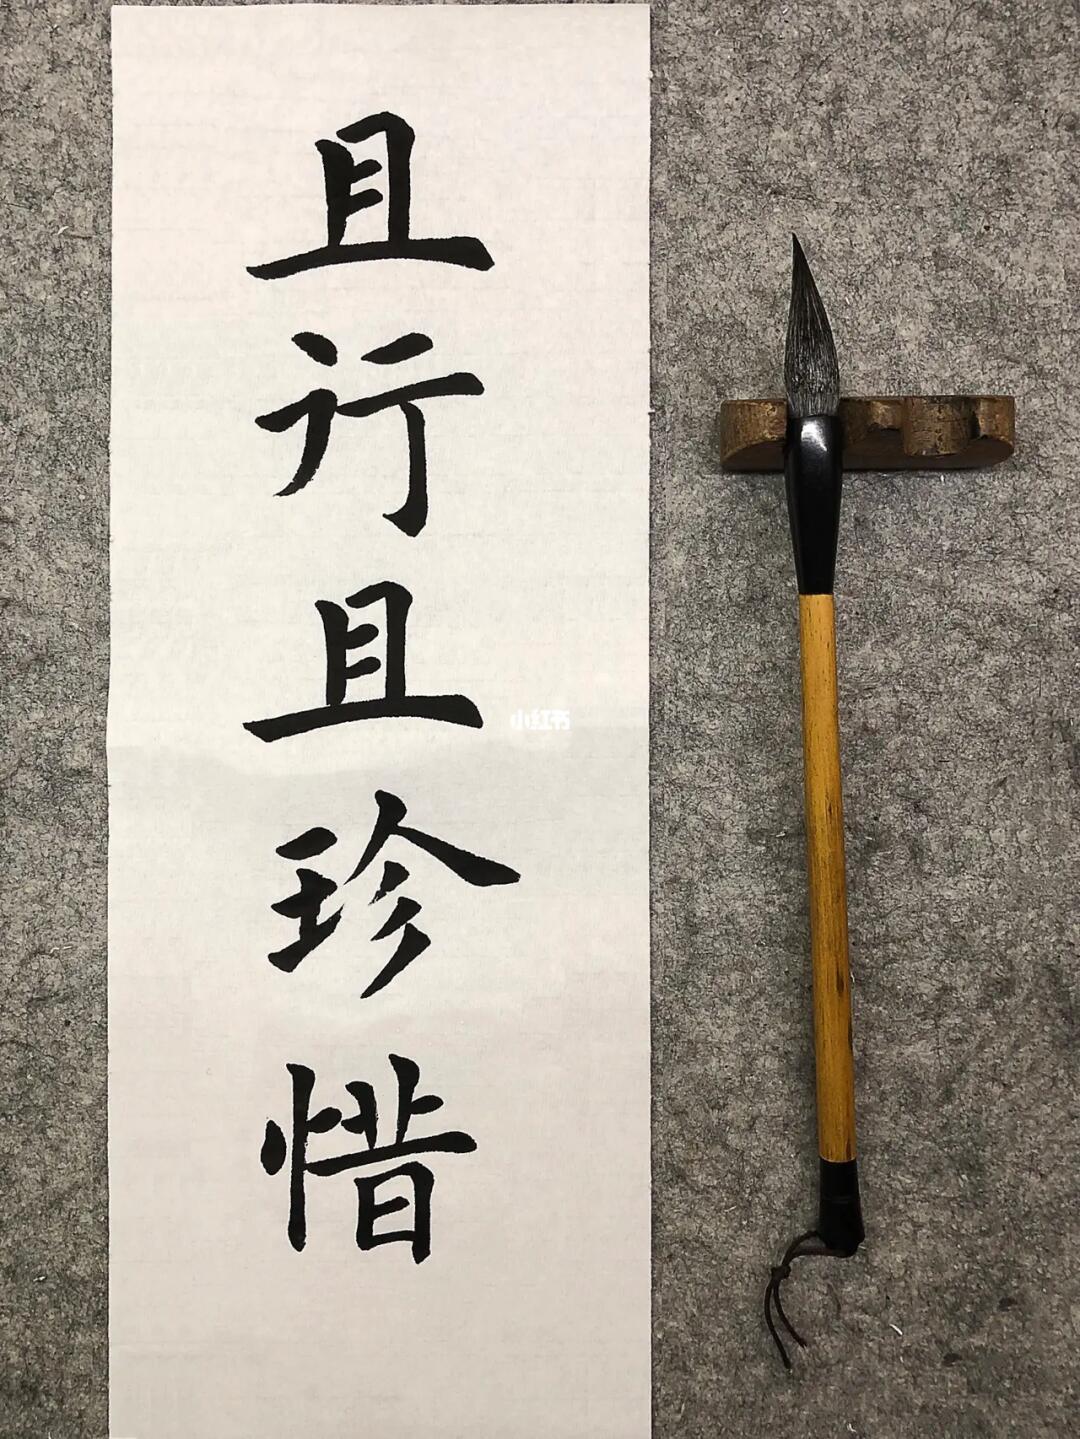 且行且珍惜
小红书